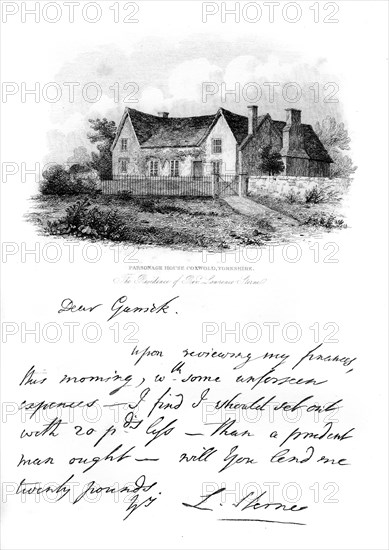 PHOTO 12 PHOTO 12 PHOTO 12
PARSONAGE HOUSE, COXWOLD, YORKSHIRE.
The Residence of Revd. Lawrence Sterne
Dear Garrick.
Upon reviewing my finances,
this morning, wth. some unforseen
expences — I find I should set out
with 20 pds. less — than a prudent
man ought — will You lend me
twenty pounds.
Yrs. L. Sterne